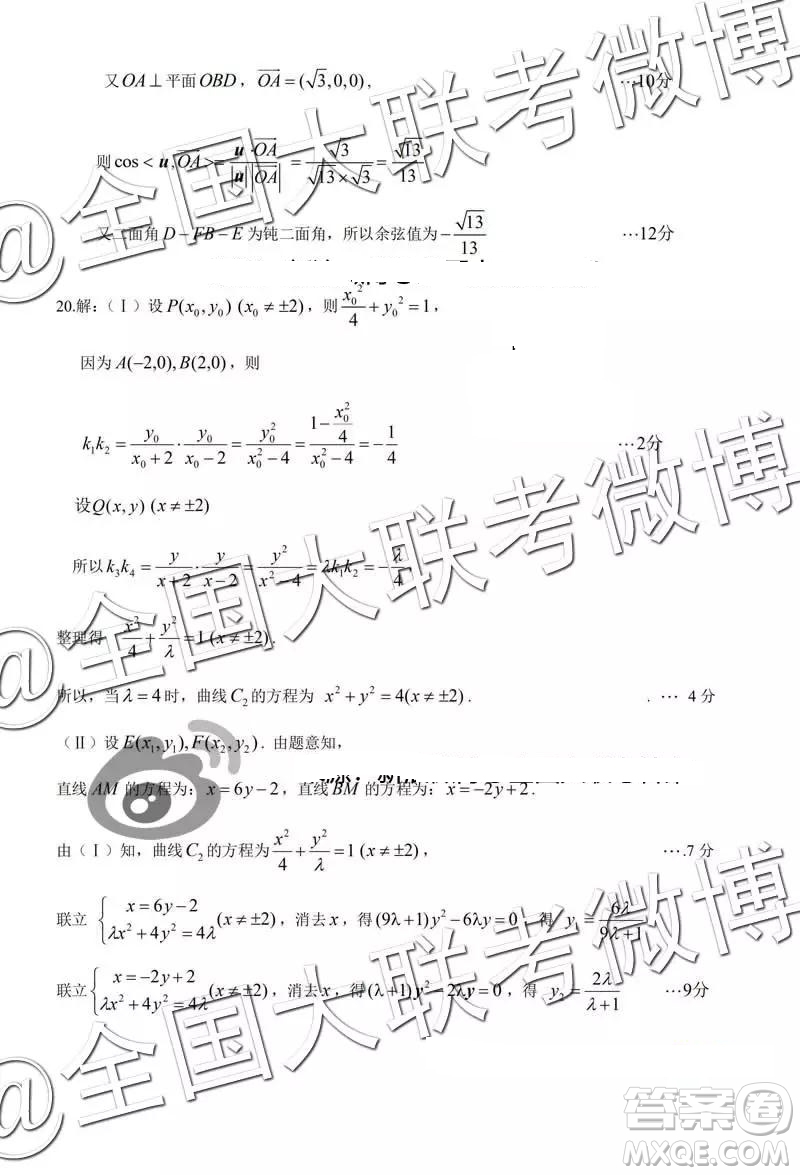 又OA⊥平面OBD，$\overrightarrow{OA}=(\sqrt{3},0,0)$， ⋯10分
则$\cos<\boldsymbol{u},\overrightarrow{OA}>=\frac{\boldsymbol{u}\cdot\overrightarrow{OA}}{|\boldsymbol{u}||\overrightarrow{OA}|}=\frac{\sqrt{3}}{\sqrt{13}\times\sqrt{3}}=\frac{\sqrt{13}}{13}$
又二面角D−FB−E为钝二面角，所以余弦值为$-\frac{\sqrt{13}}{13}$ ⋯12分
20.解：（Ⅰ）设$P(x_0,y_0)\ (x_0\neq\pm2)$，则$\frac{x_0^2}{4}+y_0^2=1$，
因为$A(-2,0),B(2,0)$，则
$k_1k_2=\frac{y_0}{x_0+2}\cdot\frac{y_0}{x_0-2}=\frac{y_0^2}{x_0^2-4}=\frac{1-\frac{x_0^2}{4}}{x_0^2-4}=-\frac{1}{4}$ ⋯2分
设$Q(x,y)\ (x\neq\pm2)$
所以$k_3k_4=\frac{y}{x+2}\cdot\frac{y}{x-2}=\frac{y^2}{x^2-4}=\lambda k_1k_2=-\frac{\lambda}{4}$
整理得 $\frac{x^2}{4}+\frac{y^2}{\lambda}=1\ (x\neq\pm2)$.
所以，当$\lambda=4$时，曲线$C_2$的方程为 $x^2+y^2=4(x\neq\pm2)$. . ⋯ 4 分
（Ⅱ）设$E(x_1,y_1),F(x_2,y_2)$. 由题意知，
直线AM 的方程为：$x=6y-2$，直线BM 的方程为：$x=-2y+2$.
由（Ⅰ）知，曲线$C_2$的方程为$\frac{x^2}{4}+\frac{y^2}{\lambda}=1\ (x\neq\pm2)$， ⋯.7 分
联立 $\begin{cases}x=6y-2\\\lambda x^2+4y^2=4\lambda\end{cases}(x\neq\pm2)$，消去$x$，得$(9\lambda+1)y^2-6\lambda y=0$，得 $y_1=\frac{6\lambda}{9\lambda+1}$
联立$\begin{cases}x=-2y+2\\\lambda x^2+4y^2=4\lambda\end{cases}(x\neq\pm2)$，消去$x$，得$(\lambda+1)y^2-2\lambda y=0$，得 $y_2=\frac{2\lambda}{\lambda+1}$ ⋯9分
@全国大联考微博
@全国大联考微博
@全国大联考微博
答案卷
MXQE.COM